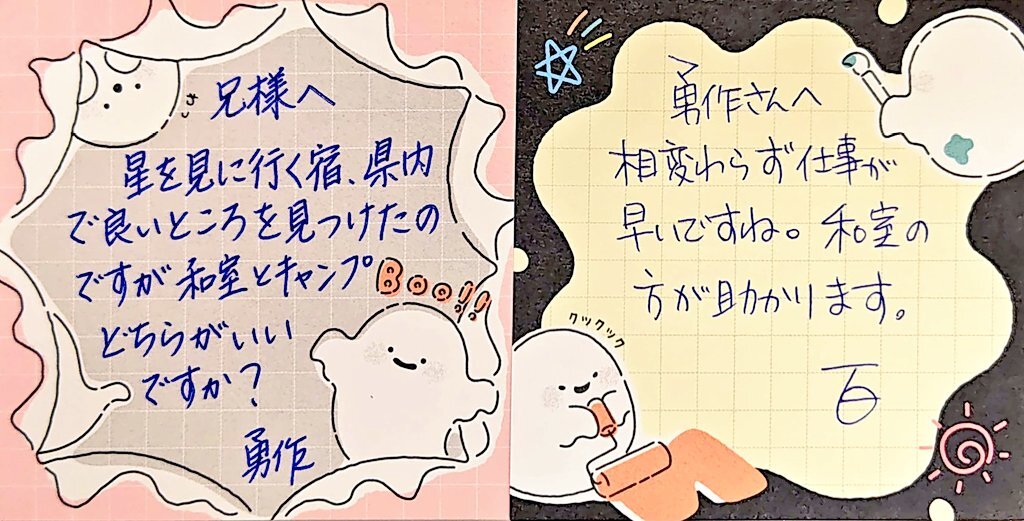 兄様へ
星を見に行く宿、県内
で良いところを見つけたの
ですが和室とキャンプ
どちらがいい
ですか?
勇作
Boo!!
勇作さんへ
相変わらず仕事が
早いですね。和室の
方が助かります。
百
クックックッ